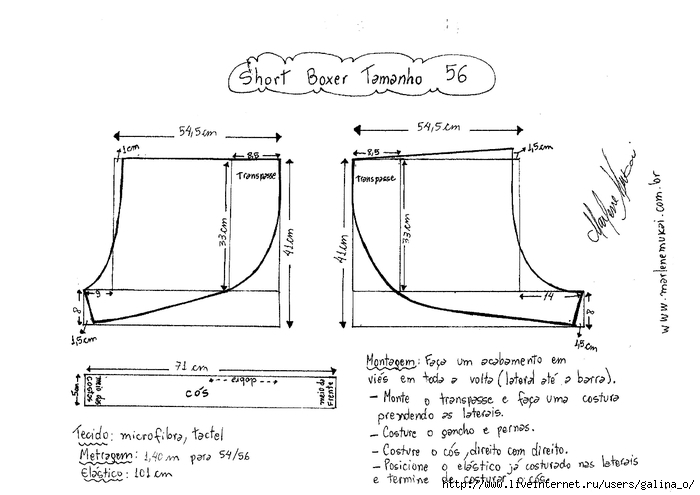 Short Boxer Tamanho 56
54,5cm
1cm
8,5
Transpasse
33cm
41cm
9
8
1,5cm
54,5cm
8,5
1,5cm
Transpasse
41cm
33cm
14
8
1,5cm
71cm
5cm
meio das costas
cós
dobra
meio da Frente
Tecido: microfibra, tactel
Metragem: 1,40m para 54/56
Elástico: 101cm
Montagem: Faça um acabamento em
viés em toda a volta (lateral até a barra).
- Monte o transpasse e faça uma costura
prendendo as laterais.
- Costure o gancho e pernas.
- Costure o cós, direito com direito.
- Posicione o elástico já costurado nas laterais
e termine de costurar o cós.
Marlene Mukai
www.marlenemukai.com.br
http://www.liveinternet.ru/users/galina_o/